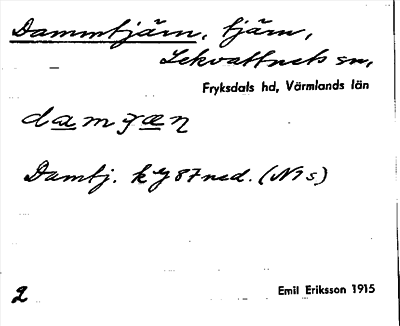 Dammtjärn, tjärn,
Lekvattnets sn,
Fryksdals hd, Värmlands län
damjæn
Damtj. k 87 ned. (N1s)
2
Emil Eriksson 1915